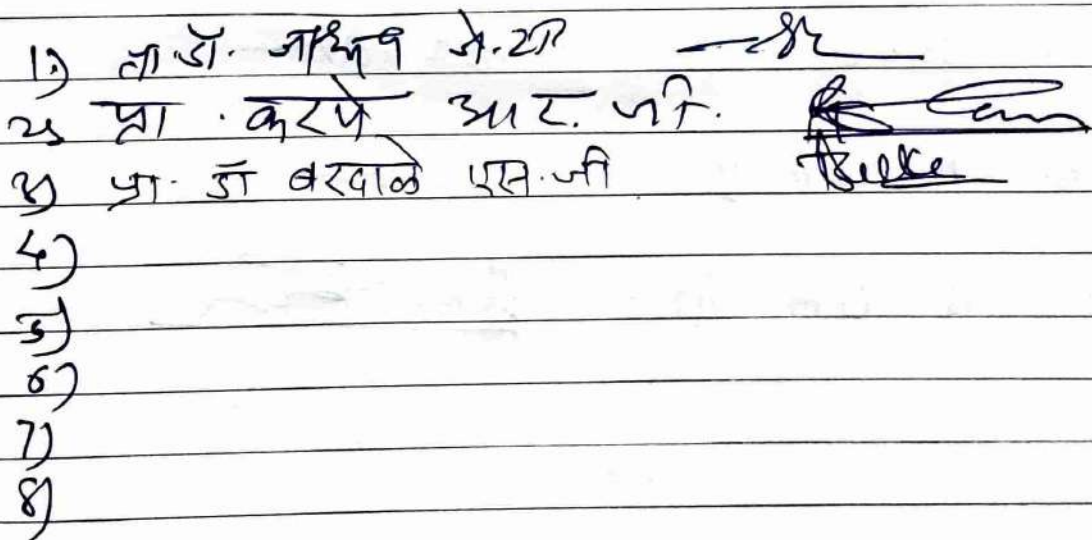 1.) प्रा.डॉ. जाधव जे.
२) प्रा. करपे आर. जी.
३) प्रा. डॉ बरदाळे एस.जी
4)
5)
6)
7)
8)